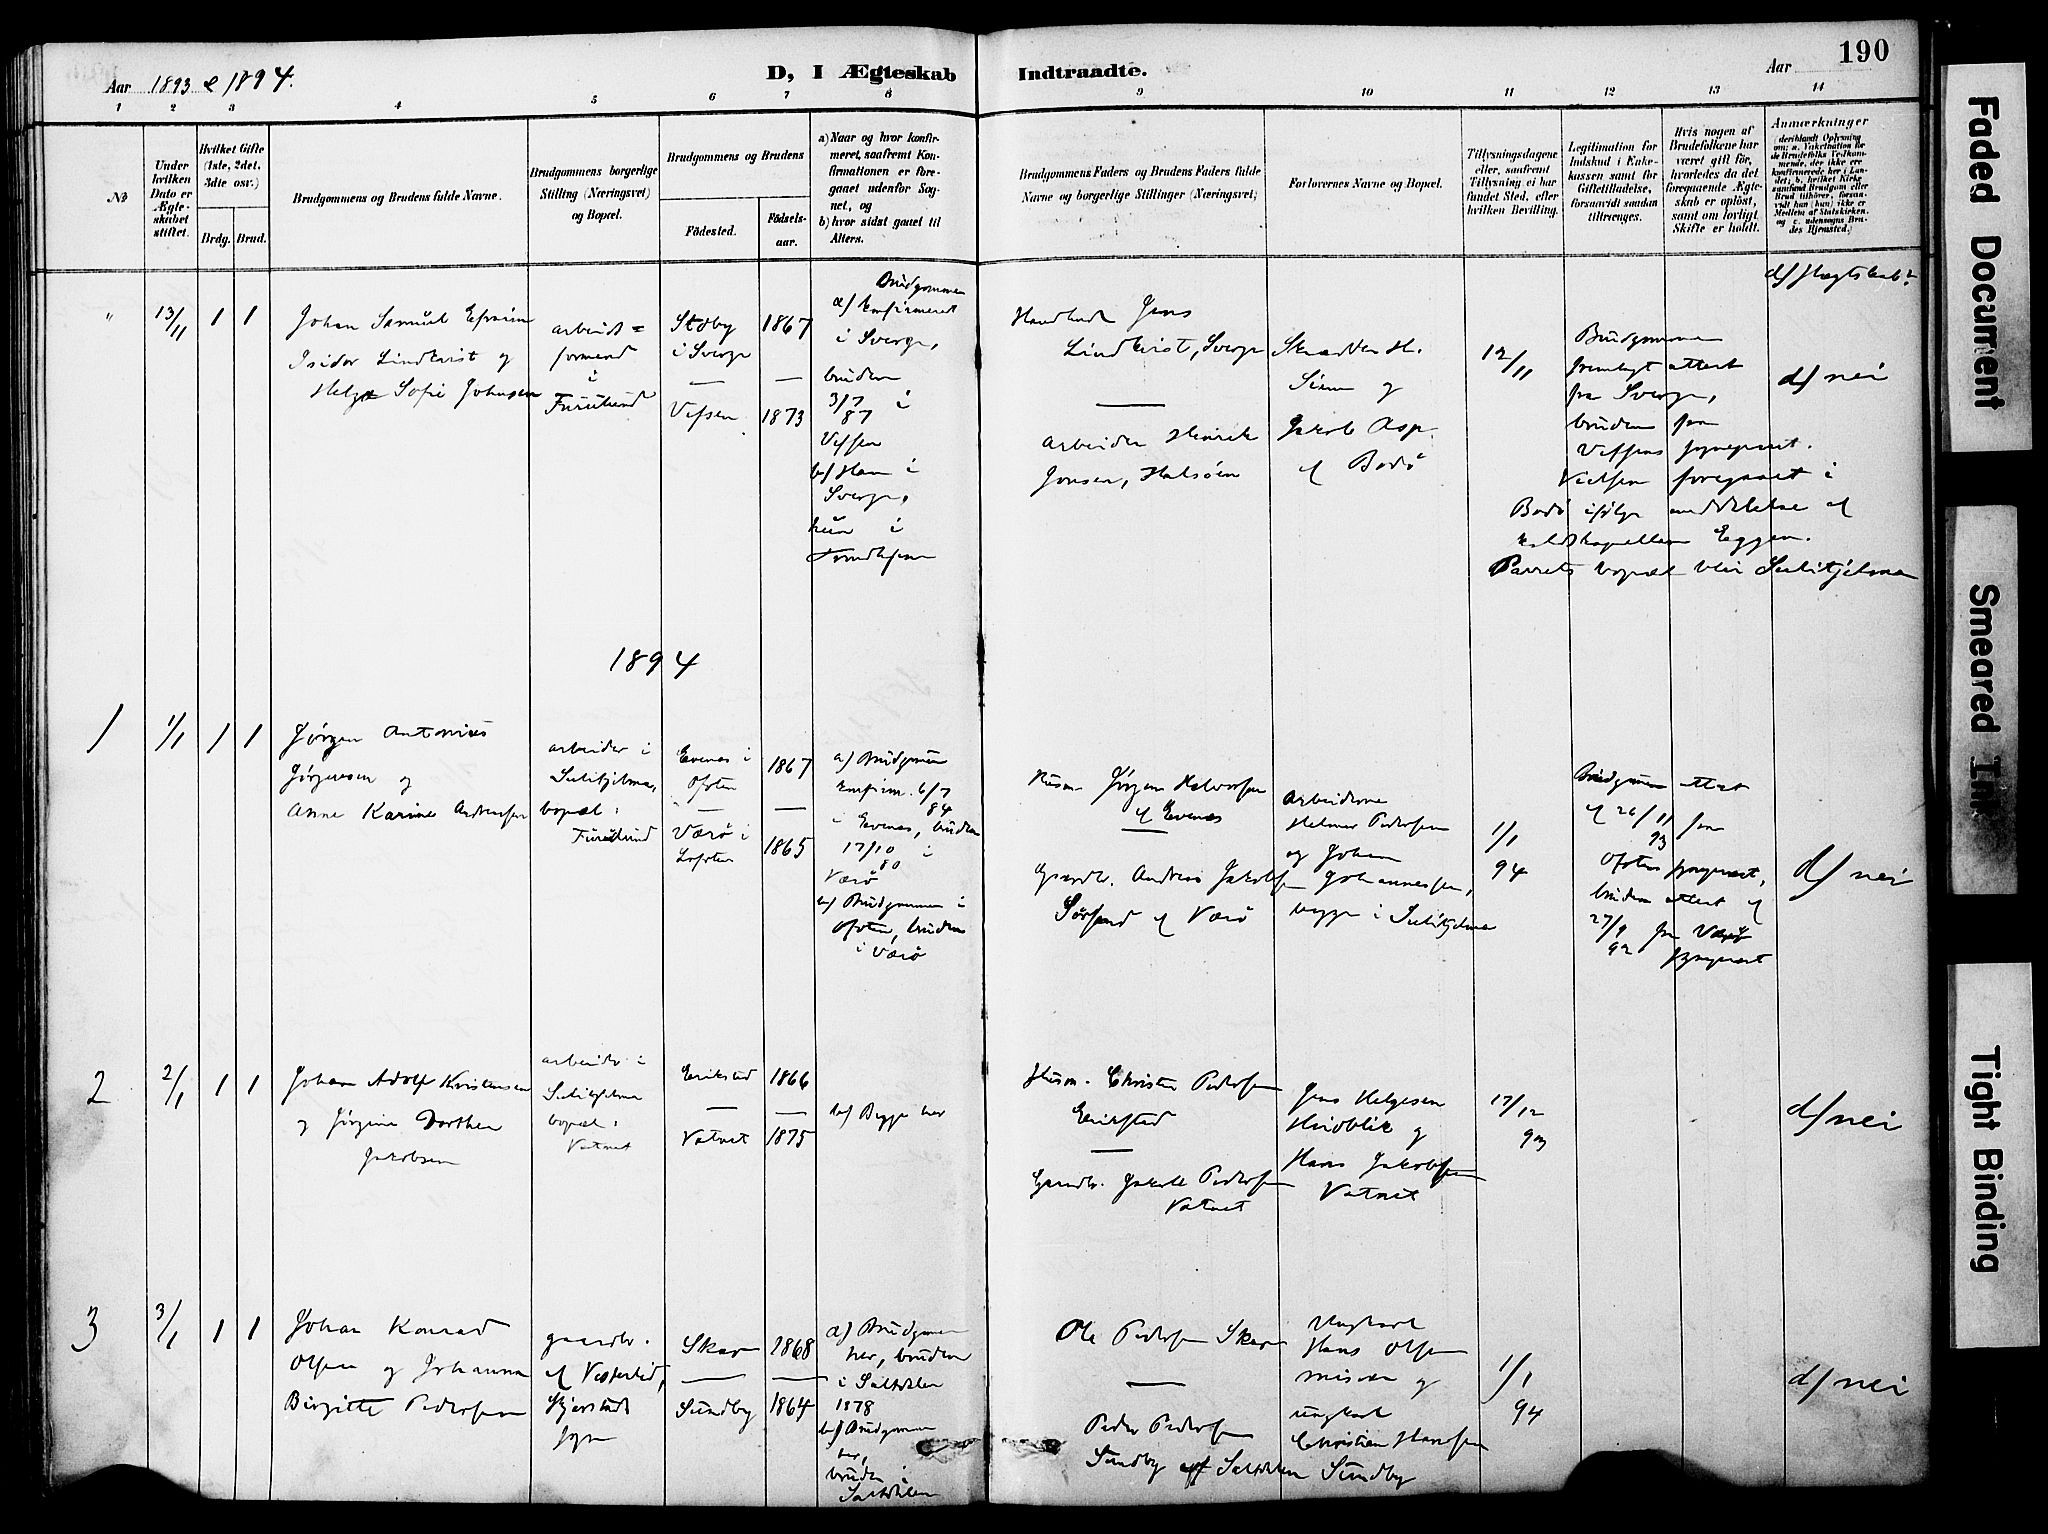 Aar 1893 & 1894.
D, I Ægteskab
Indtraadte.
Aar
190
1
2
3
4
5
6
7
8
9
10
11
12
13
14
No
Under
hvilken
Dato er
Ægte-
skabet
stiftet.
Hvilket Gifte
(1ste, 2det,
3dte osv.)
Brdg.
Brud.
Brudgommens og Brudens fulde Navne.
Brudgommens borgerlige
Stilling (Næringsvei)
og Bopæl.
Brudgommens og Brudens
Fødested.
Fødsels-
aar.
a) Naar og hvor konfir-
meret, saafremt Kon-
firmationen er fore-
gaaet udenfor Sog-
net, og
b) hvor sidst gaaet til
Alters.
Brudgommens Faders og Brudens Faders fulde
Navne og borgerlige Stillinger (Næringsvei)
Forlovernes Navne og Bopæl.
Tillysningsdagene
eller, saafremt
Tillysning ei har
fundet Sted, efter
hvilken Bevilling.
Legitimation for
Indskud i Enke-
kassen samt for
Giftetilladelse,
forsaavidt saadan
tiltrænges.
Hvis nogen af
Brudefolkene har
været gift før,
hvorledes da det
foregaaende Ægte-
skab er opløst,
samt om lovligt
Skifte er holdt.
Anmærkninger
"
13/11
1
1
Johan Samuel Efraim
Isidor Lindkvist og
Helga Sofie Johnsen
arbeids=
formand
i
Furulund
i Sverge
—
Vefsen
1867
—
1873
Brudgommen
a/ konfirmeret
i Sverge,
bruden
3/7 87 i
Vefsen
b/ Han i
Sverge,
hun i
Trondhjem
Jens
Lindkvist, Sverge
—
arbeider Henrik
Jonsen, Halsøen
og
Jakob Asp
af Bodø
12/11
Brudgommen
fremlagt attest
fra Sverge,
bruden fra
Vefsens sognepræst.
Vielsen foregaaet i
Bodø ifølge meddelelse af
Eggen.
Parrets bopæl blir Sulitjelma
d/ Slægtskab?
d/ nei
1894
1
1/1
1
1
Jørgen Antonius
Jørgensen og
Anne Karine Andreasen
arbeider i
Sulitjelma,
bopæl:
Furulund
Evenes i
Ofoten
—
Værø i
Lofoten
1867
—
1865
a/ Brudgommen
konfirm. 6/7 84
i Evenes, bruden
17/10 80 i
Værø
b/ Brudgommen i
Ofoten, bruden
i Værø
Husm. Jørgen Halvorsen
af Evenes
—
Gaardbr. Andreas Jakobsen
Sørland af Værø
Arbeiderne
Helmer Pedersen
og Johan
Johannessen,
begge i Sulitjelma
1/1
94
Brudgommen attest
af 26/11 93 fra
Ofotens sognepræst,
bruden attest af
27/9 92 fra Værø
sognepræst
d/ nei
2
2/1
1
1
Johan Adolf Kristensen
og Jørgine Dorthea
Jakobsen
arbeider i
Sulitjelma
bopæl:
Vatnet
Erikstad
—
Vatnet
1866
—
1875
b/ Begge her
Husm. Christen Pedersen
Erikstad
—
Gaardbr. Jakob Pedersen
Vatnet
Jens Helgesen
og
Hans Jakobsen
Vatnet
17/12
93
d/ nei
3
3/1
1
1
Johan Konrad
Olsen og Johanna
Birgitte Pedersen
gaardbr.
af
Skjerstad
sogn
Skar
—
Sundby
1868
—
1864
a/ Brudgommen
her, bruden
i Saltdalen
1878
b/ Brudgommen
her,
bruden i
Saltdalen
Ole Pedersen Skar
—
Peder Pedersen
Sundby af Saltdalen
Ungkarl
Hans Olsen
Misvær og
ungkarl
Christian Hansen
Sundby
1/1
94
d/ nei
Faded Document
Smeared Ink
Tight Binding